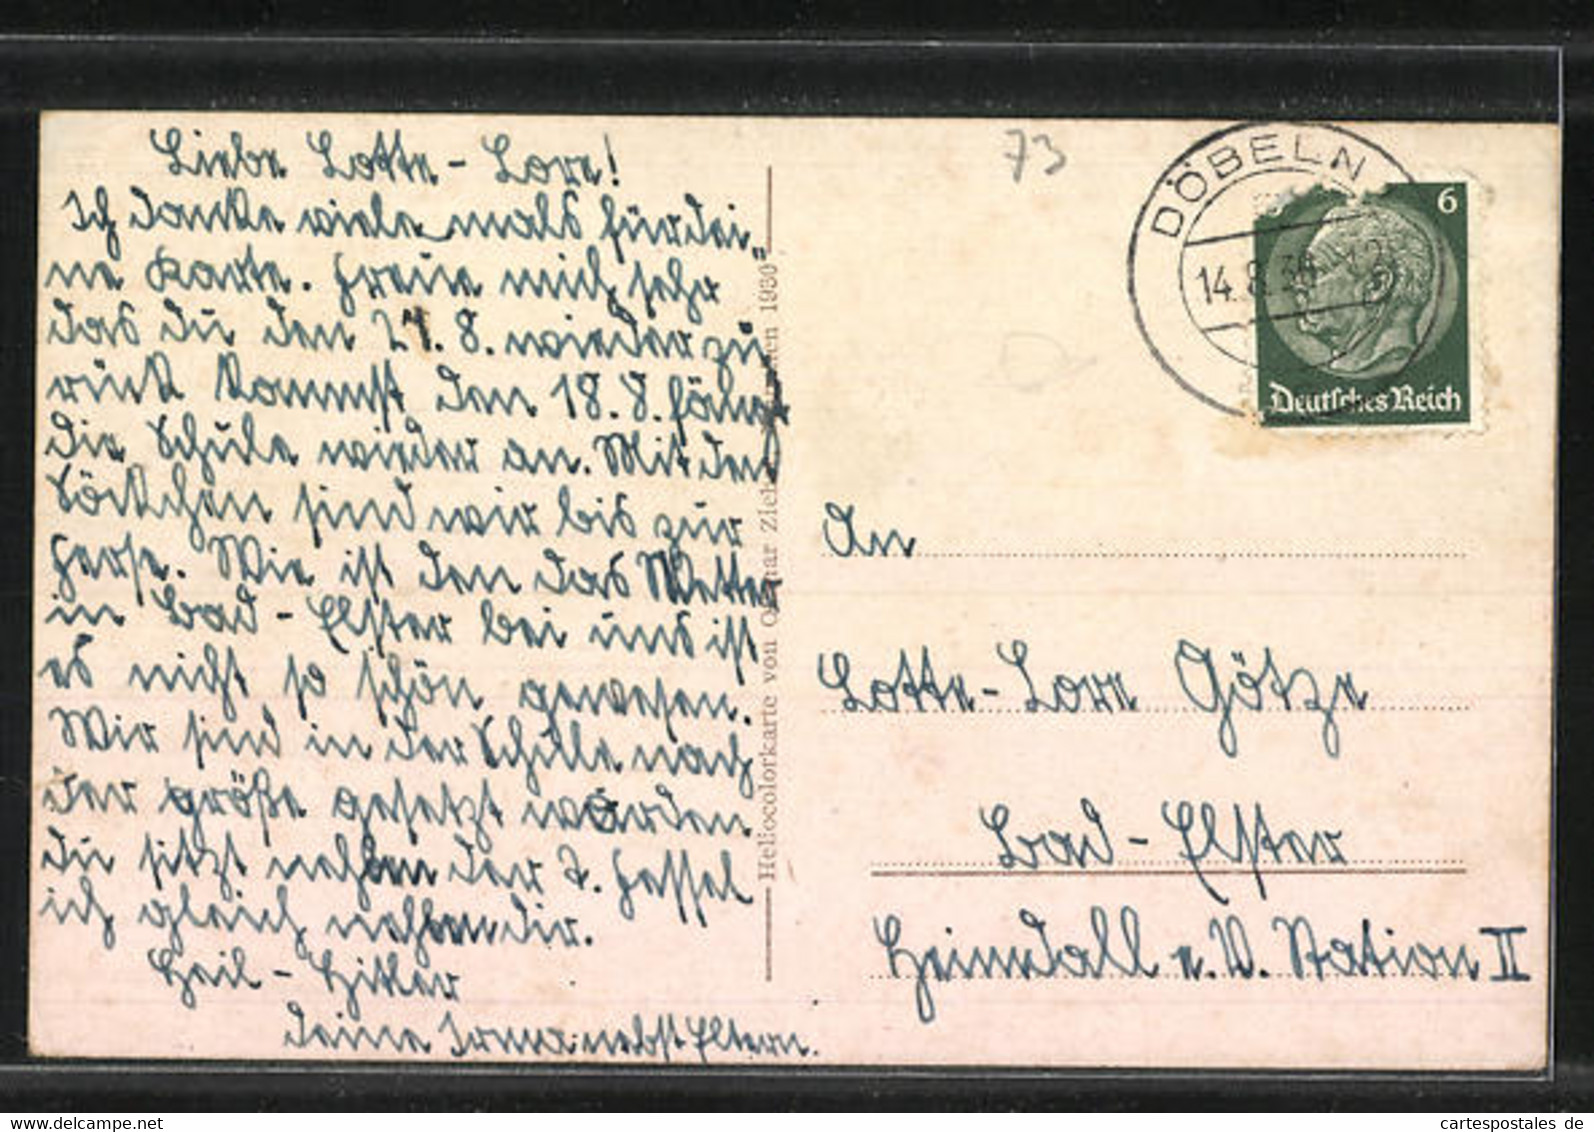 Liebe Lotte-Lore!
Ich danke viele mals für dei„
ne Karte. Freue mich sehr
das du den 21. 8. wieder zu
rück kommst den 18. 8. fängt
die Schule wieder an. Mit den
Söckchen sind wir bis zur
Ferse. Wie ist den das Wetter
in Bad-Elster bei uns ist
es nicht so schön gewesen.
Wir sind in der Schule nach
der größe gesetzt worden
du sitzt nehben der I. Hessel
ich gleich nehben dir.
Heil-Hitler
deine Irma nebst Eltern.
Heliocolorkarte von Ottmar Zieher, München 1930
73
DÖBELN
14. 8.
6
Deutsches Reich
An
Lotte-Lore Götze
Bad-Elster
Heimdall e. V. Station II
cartespostales de